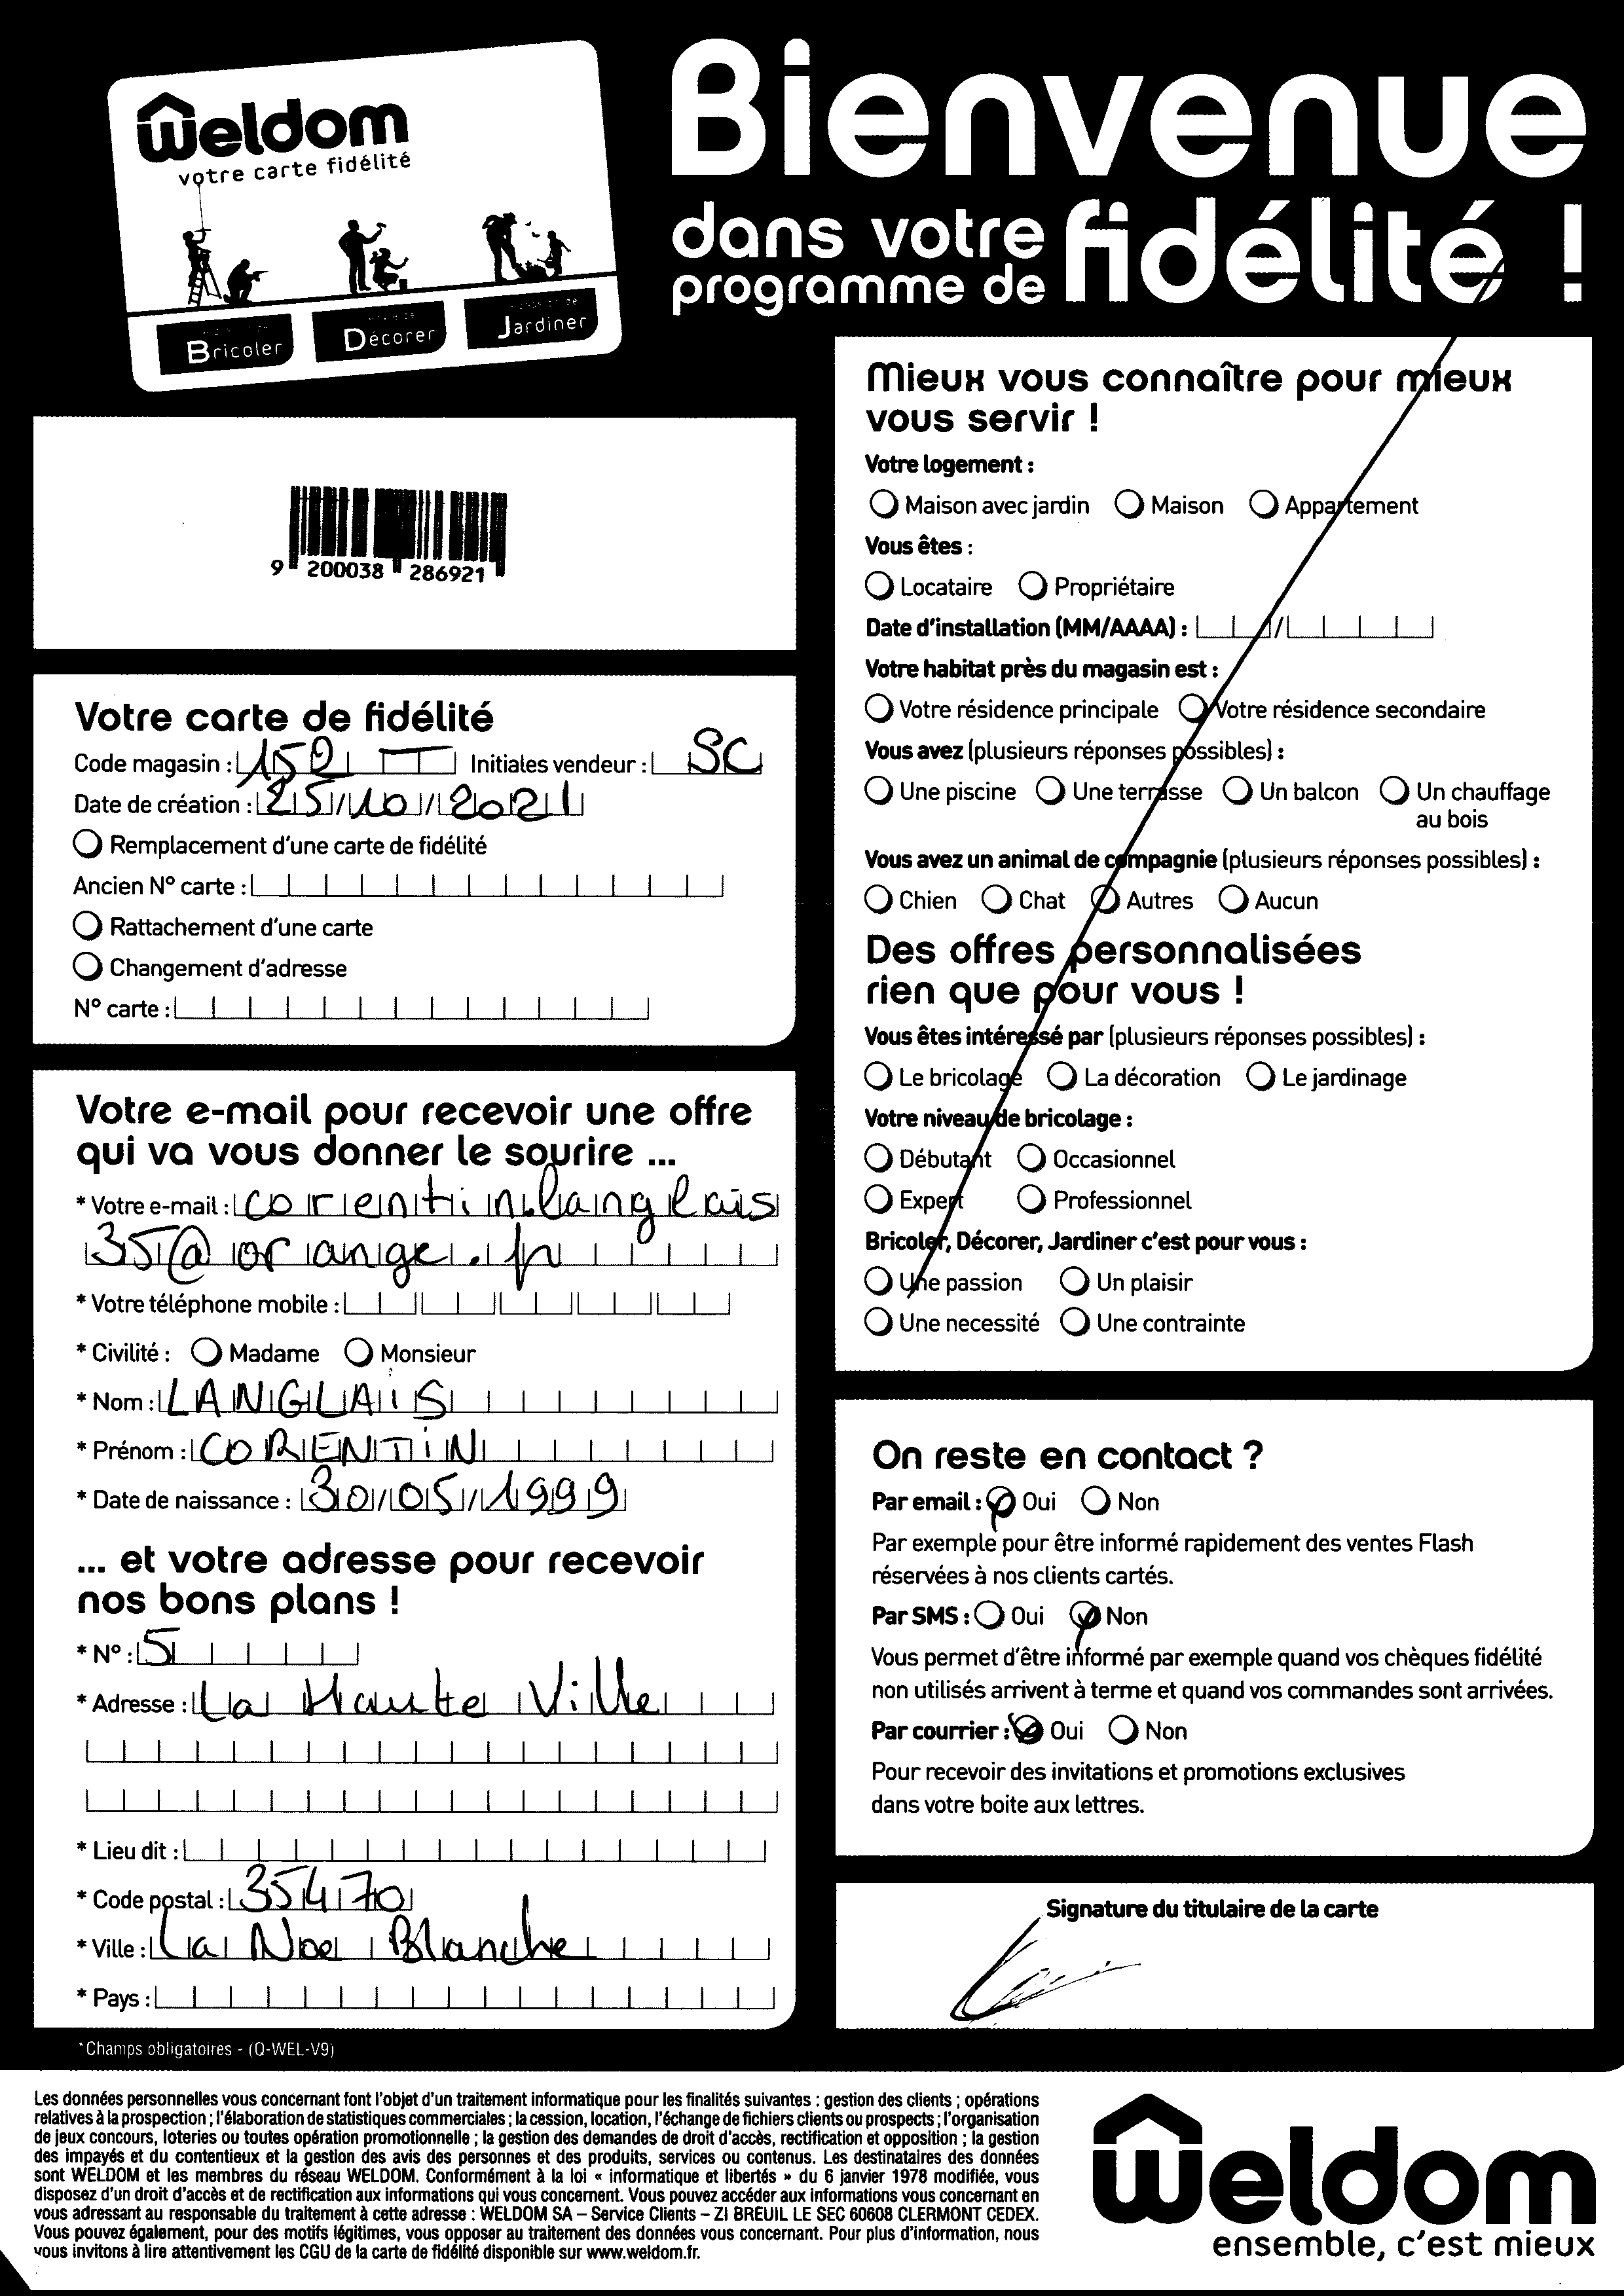 weldom
votre carte fidélité
Bricoler
Décorer
Jardiner
Bienvenue
dans votre
programme de fidélité !
9 200038 286921
Votre carte de fidélité
Code magasin : 152 Initiales vendeur : SC
Date de création : 25/10/2021
Remplacement d'une carte de fidélité
Ancien N° carte :
Rattachement d'une carte
Changement d'adresse
N° carte :
Votre e-mail pour recevoir une offre
qui va vous donner le sourire ...
* Votre e-mail : corentin.langlais
35@orange.fr
* Votre téléphone mobile :
* Civilité : Madame Monsieur
* Nom : LANGLAIS
* Prénom : CORENTIN
* Date de naissance : 30/05/1999
... et votre adresse pour recevoir
nos bons plans !
* N° : 5
* Adresse : La Haute Ville
* Lieu dit :
* Code postal : 35470
* Ville : La Noe Blanche
* Pays :
*Champs obligatoires - (Q-WEL-V9)
Mieux vous connaître pour mieux
vous servir !
Votre logement :
Maison avec jardin Maison Appartement
Vous êtes :
Locataire Propriétaire
Date d'installation (MM/AAAA) : /
Votre habitat près du magasin est :
Votre résidence principale Votre résidence secondaire
Vous avez (plusieurs réponses possibles) :
Une piscine Une terrasse Un balcon Un chauffage
au bois
Vous avez un animal de compagnie (plusieurs réponses possibles) :
Chien Chat Autres Aucun
Des offres personnalisées
rien que pour vous !
Vous êtes intéressé par (plusieurs réponses possibles) :
Le bricolage La décoration Le jardinage
Votre niveau de bricolage :
Débutant Occasionnel
Expert Professionnel
Bricoler, Décorer, Jardiner c'est pour vous :
Une passion Un plaisir
Une necessité Une contrainte
On reste en contact ?
Par email : Oui Non
Par exemple pour être informé rapidement des ventes Flash
réservées à nos clients cartés.
Par SMS : Oui Non
Vous permet d'être informé par exemple quand vos chèques fidélité
non utilisés arrivent à terme et quand vos commandes sont arrivées.
Par courrier : Oui Non
Pour recevoir des invitations et promotions exclusives
dans votre boite aux lettres.
Signature du titulaire de la carte
Les données personnelles vous concernant font l'objet d'un traitement informatique pour les finalités suivantes : gestion des clients ; opérations
relatives à la prospection ; l'élaboration de statistiques commerciales ; la cession, location, l'échange de fichiers clients ou prospects ; l'organisation
de jeux concours, loteries ou toutes opération promotionnelle ; la gestion des demandes de droit d'accès, rectification et opposition ; la gestion
des impayés et du contentieux et la gestion des avis des personnes et des produits, services ou contenus. Les destinataires des données
sont WELDOM et les membres du réseau WELDOM. Conformément à la loi « informatique et libertés » du 6 janvier 1978 modifiée, vous
disposez d'un droit d'accès et de rectification aux informations qui vous concernent. Vous pouvez accéder aux informations vous concernant en
vous adressant au responsable du traitement à cette adresse : WELDOM SA – Service Clients – ZI BREUIL LE SEC 60608 CLERMONT CEDEX.
Vous pouvez également, pour des motifs légitimes, vous opposer au traitement des données vous concernant. Pour plus d'information, nous
vous invitons à lire attentivement les CGU de la carte de fidélité disponible sur www.weldom.fr.
weldom
ensemble, c'est mieux